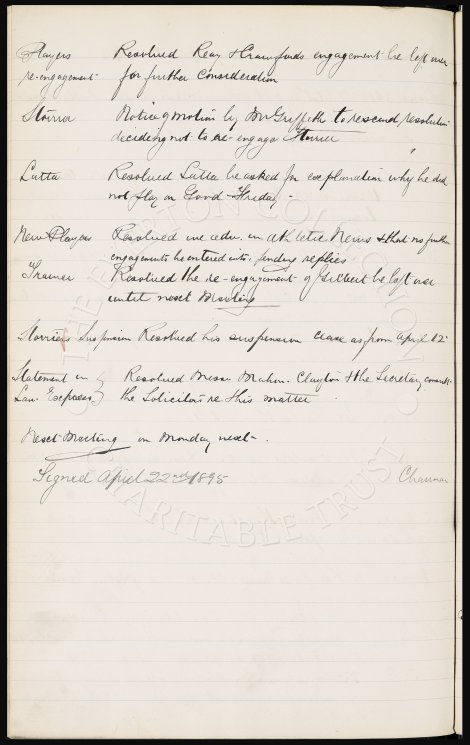 Players Resolved Reay & Crawfords engagement be left over
re-engagement for further consideration
Storrier Notice of motion by Mr Griffith to rescind resolution
deciding not to re-engage Storrier
Latta Resolved Latta be asked for explanation why he did
not play on Good Friday.
New Players Resolved we adv. in Athletic News & that no further
engagements be entered into, pending replies
Trainer Resolved the re-engagement of be left over
until next Meeting
Storriers Suspension Resolved his suspension cease as from April 12
Statement in Resolved Messrs Mahon. Clayton & the Secretary consult
Lan. Express the Solicitors re this matter.
Next Meeting on Monday next.
Signed April 22nd 1895 Chairman
THE EVERTON COLLECTION
CHARITABLE TRUST